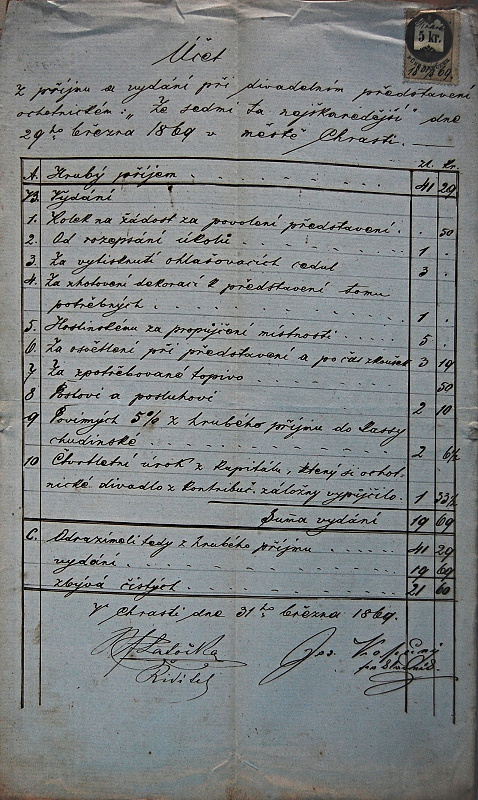 Účet
5 kr.
z příjmu a vydání při divadelním představení
ochotnickém: „Ze sedmi ta nejškaredější" dne
29ho března 1869 v městě Chrasti.
zl. kr.
A. Hrubý příjem 41 29
B. Vydání
1. Kolek na žádost za povolení představení . 50
2. Od rozepsání úkolů 1 .
3. Za vytisknutí ohlašovacích cedul 3 .
4. Za zhotovení dekorací k představení tomu
potřebných 1 .
5. Hostinskému za propůjčení místnosti 5 .
6. Za osvětlení při představení a po čas zkoušek 3 19
7. Za zpotřebované topivo 50
8 Poslovi a posluhovi 2 10
9 Povinných 5% z hrubého příjmu do kassy
chudinské 2 6½
10 Čtvrtletní úrok z kapitálu, který si ochot-
nické divadlo z kontribuč. záložny vypůjčilo. 1 33½
Suma vydání 19 69
C. Odrazímeli tedy z hrubého příjmu 41 29
vydání 19 69
zbývá čistých 21 60
V Chrasti dne 31ho března 1869.
Ředitel
Jos.